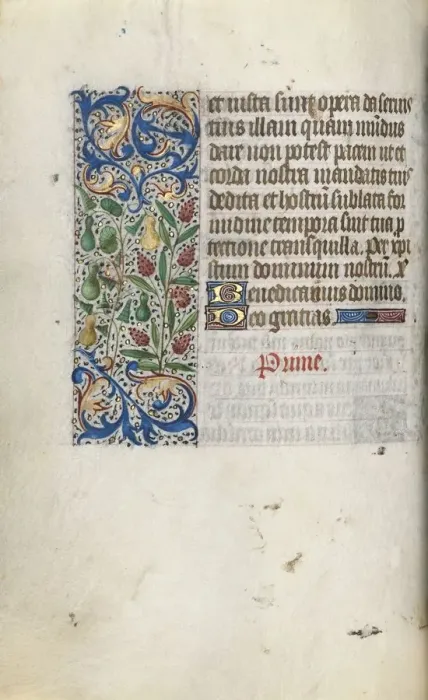 et iusta sunt opera da servis
tuis illam quam mūdus
dare non potest pacem ut et
corda nostra mandatis tuis
dedita et hostiū sublata for
midine tempora sint tua p
tectione tranquilla. Per xpi
stum dominum nostrū.
Benedicamus domino.
Deo gratias.
Prime.